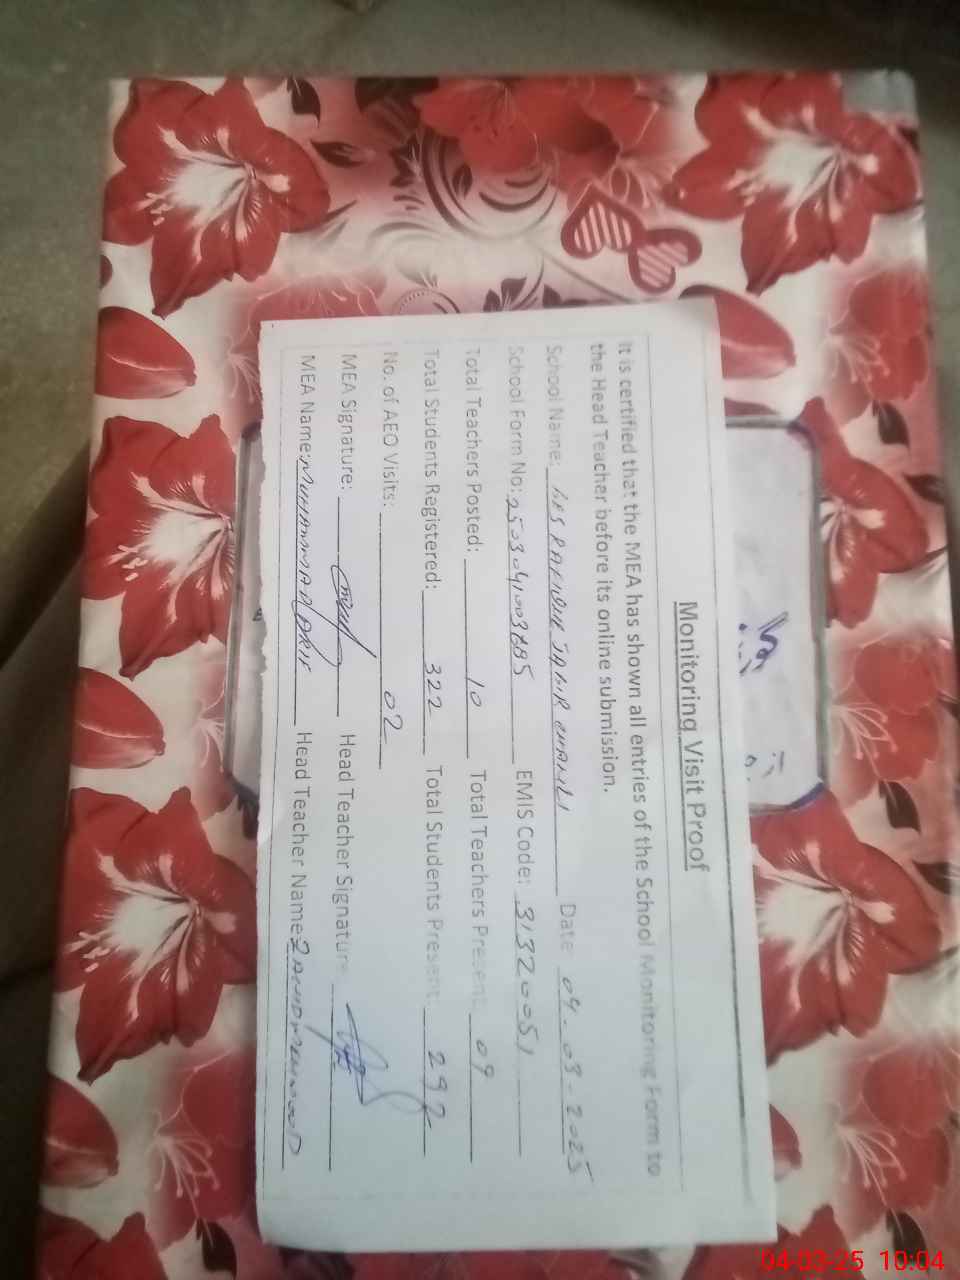 Monitoring Visit Proof
It is certified that the MEA has shown all entries of the School Monitoring Form to
the Head Teacher before its online submission.
School Name: Date 04-03-2025
School Form No: EMIS Code: 31320051
Total Teachers Posted: 10 Total Teachers Present: 09
Total Students Registered: 322 Total Students Present: 292
No. of AEO Visits: 02
MEA Signature: Head Teacher Signature
MEA Name: MUHAMMAD Head Teacher Name
04-03-25 10:04